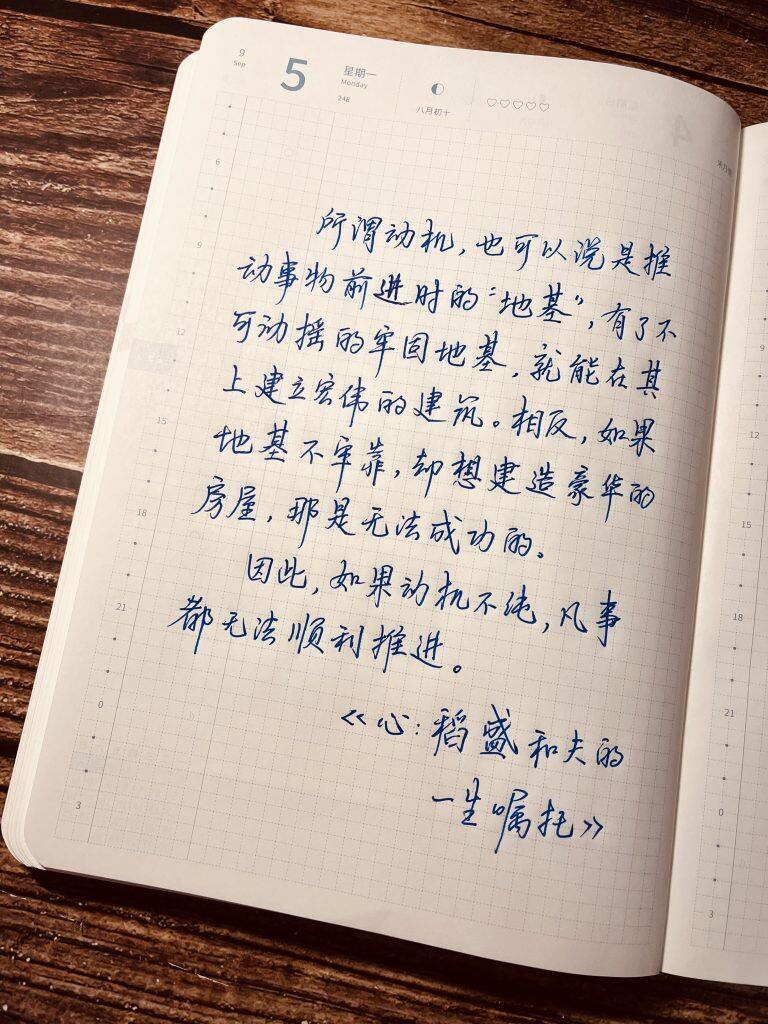 9
Sep
5
星期一
Monday
248
八月初十
♡♡♡♡♡
所谓动机,也可以说是推
动事物前进时的“地基”,有了不
可动摇的牢固地基,就能在其
上建立宏伟的建筑。相反,如果
地基不牢靠,却想建造豪华的
房屋,那是无法成功的。
因此,如果动机不纯,凡事
都无法顺利推进。
《心:稻盛和夫的
一生嘱托》
6
9
12
15
18
21
0
3
9
12
15
18
21
0
3